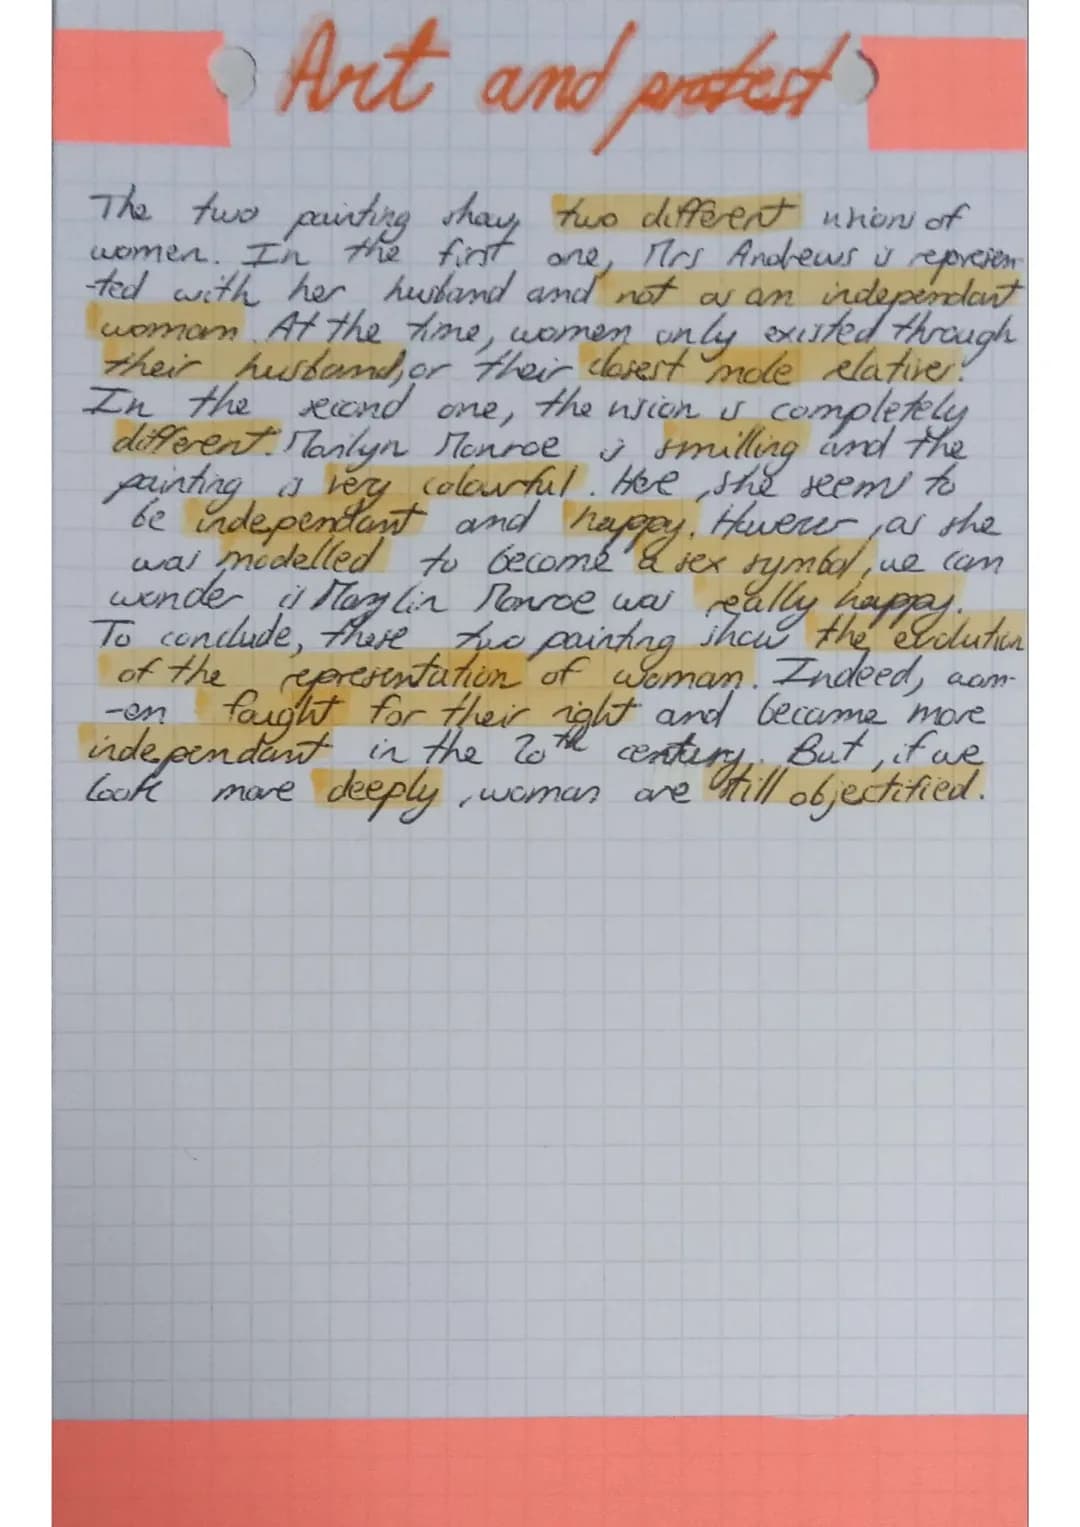 Art and protest
The two painting show two different visions of
women. In the first one, Mrs Andrews is represen
-ted with her husband and not as an independant
woman. At the time, women only existed through
their husband, or their closest male relatives.
In the second one, the vision is completely
different. Marilyn Monroe is smilling and the
painting is very colourful. Here, she seems to
be independant and happy. However, as she
was modelled to become a sex symbol, we can
wonder is Marylin Monroe was really happy.
To conclude, these two painting show the evolution
of the representation of woman. Indeed, wom-
-en fought for their right and became more
independant in the 20th century. But, if we
look more deeply, woman are still objectified.